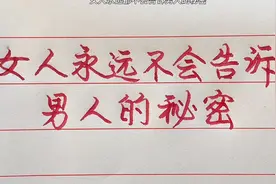 女人永远不会告诉
男人的秘密